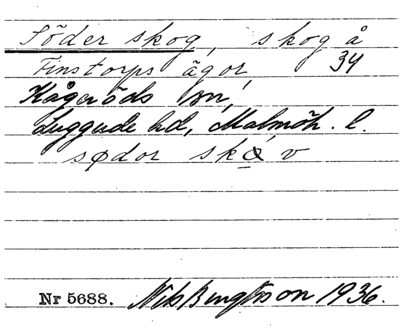 Söder skog, skog å
Finstorps ägor, 34
Kågeröds sn,
Luggude hd, Malmöh. l.
sødor skǫ́ v
Nr 5688. Nils Bengtsson 1936.